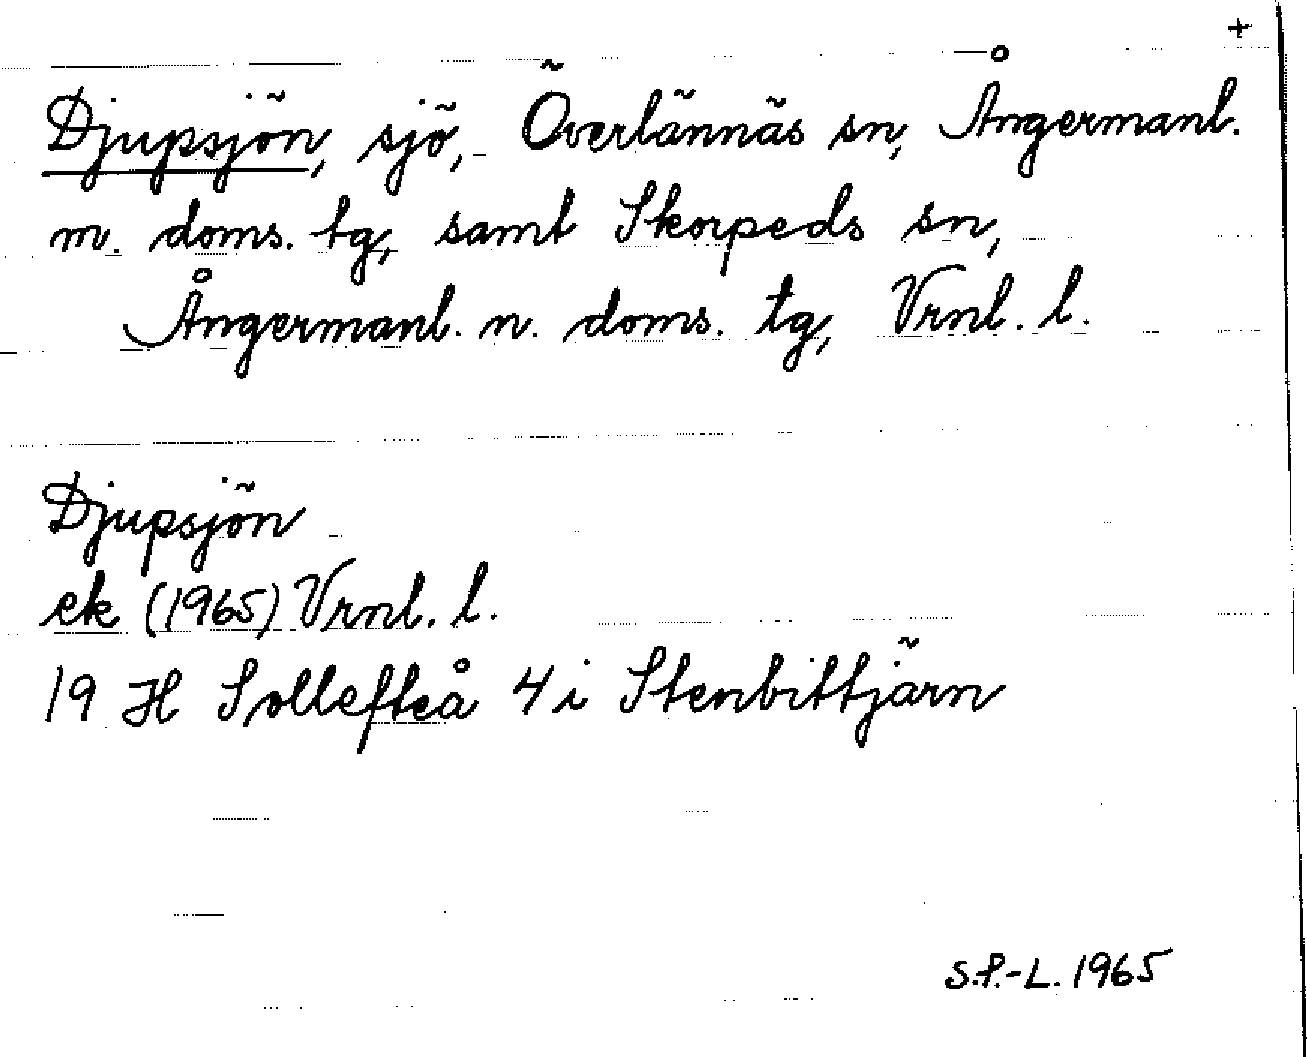 +
Djupsjön, sjö, Överlännäs sn, Ångermanl.
m. doms. tg, samt Skorpeds sn,
Ångermanl. n. doms. tg, Vrnl. l.
Djupsjön
ek (1965) Vrnl. l.
19 H Sollefteå 4 i Stenbittjärn
S.P.-L. 1965